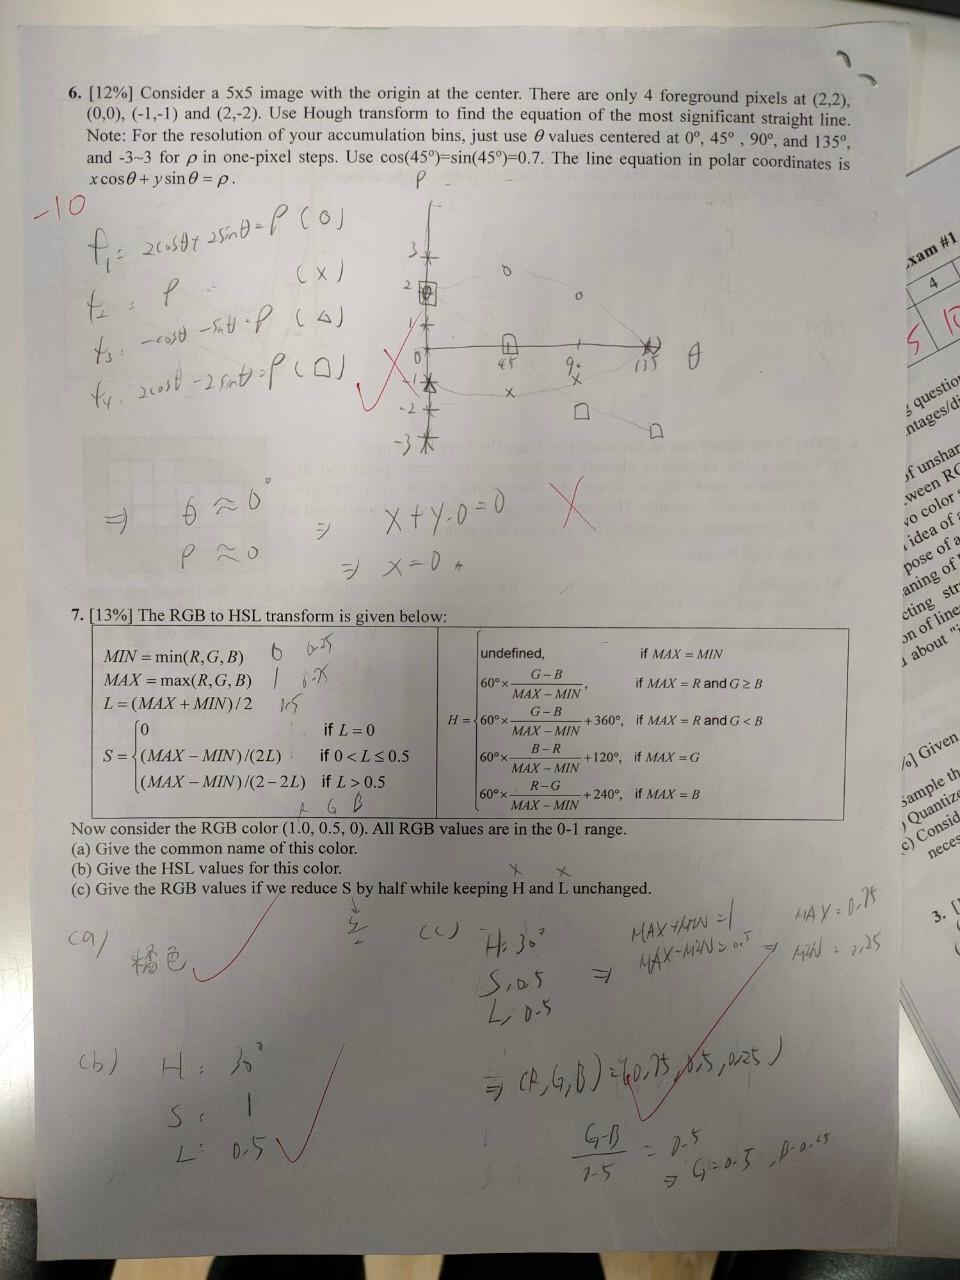 6. [12%] Consider a 5x5 image with the origin at the center. There are only 4 foreground pixels at (2,2),
(0,0), (-1,-1) and (2,-2). Use Hough transform to find the equation of the most significant straight line.
Note: For the resolution of your accumulation bins, just use θ values centered at 0°, 45° , 90°, and 135°,
and -3~3 for ρ in one-pixel steps. Use cos(45°)=sin(45°)=0.7. The line equation in polar coordinates is
x cosθ + y sinθ = ρ.
-10
f₁: 2cosθ+2sinθ=ρ (○)
f₂: ρ (×)
f₃: -cosθ-sinθ=ρ (△)
f₄: 2cosθ-2sinθ=ρ (□)
ρ
3
2
1
0
-1
-2
-3
45
90
135
θ
⇒ θ≈0°
ρ≈0
⇒ x+y·0=0
⇒ x=0
7. [13%] The RGB to HSL transform is given below:
MIN = min(R,G,B) 0 0.25
MAX = max(R,G,B) 1
L = (MAX + MIN)/2
S = { 0 if L = 0
(MAX − MIN)/(2L) if 0 < L ≤ 0.5
(MAX − MIN)/(2−2L) if L > 0.5
H = { undefined, if MAX = MIN
60°× (G−B)/(MAX−MIN), if MAX = R and G ≥ B
60°× (G−B)/(MAX−MIN) +360°, if MAX = R and G < B
60°× (B−R)/(MAX−MIN) +120°, if MAX = G
60°× (R−G)/(MAX−MIN) +240°, if MAX = B
R G B
Now consider the RGB color (1.0, 0.5, 0). All RGB values are in the 0-1 range.
(a) Give the common name of this color.
(b) Give the HSL values for this color.
(c) Give the RGB values if we reduce S by half while keeping H and L unchanged.
(a) 橘色
(b) H: 30°
S: 1
L: 0.5
(c) H: 30°
S: 0.5
L: 0.5
⇒ MAX+MIN=1
MAX-MIN=0.5
⇒ MAX=0.75
MIN=0.25
⇒ (R,G,B)=(0.75,0.5,0.25)
(G-B)/0.5 = 0.5
⇒ G=0.5, B=0.25
Exam #1
4
5
questio
ntages/di
of unshar
ween RG
vo color s
idea of a
pose of a
aning of
cting str
on of line
about "i
%] Given
Sample th
) Quantize
c) Consid
neces
3. [